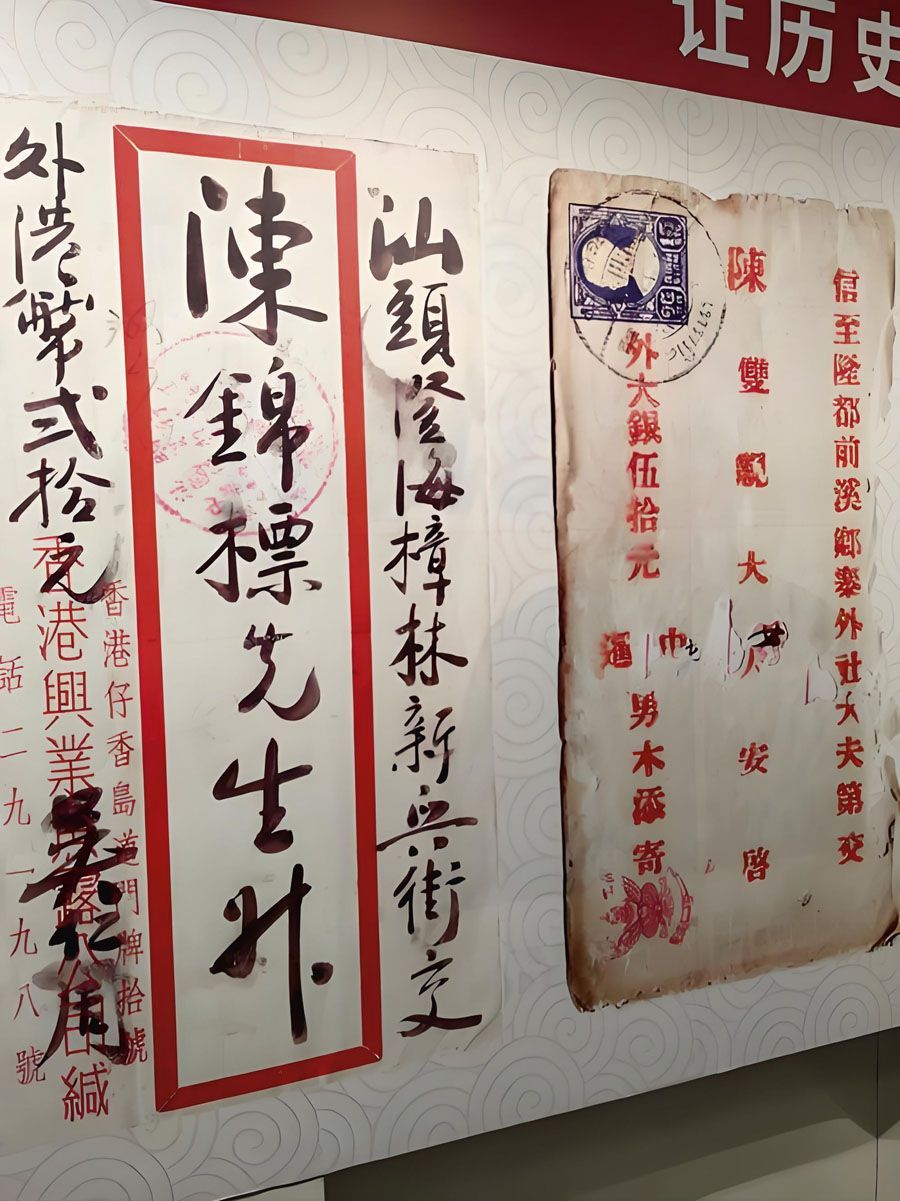 让历史
汕頭澄海樟林新興街交
陳錦標先生升
外港幣弍拾元
香港仔香島道門牌拾號
香港興業
電話二九一九九八號
緘
信至隆都前溪鄉寨外社大夫第交
陳雙親大人安啓
外大銀伍拾元
男木添寄